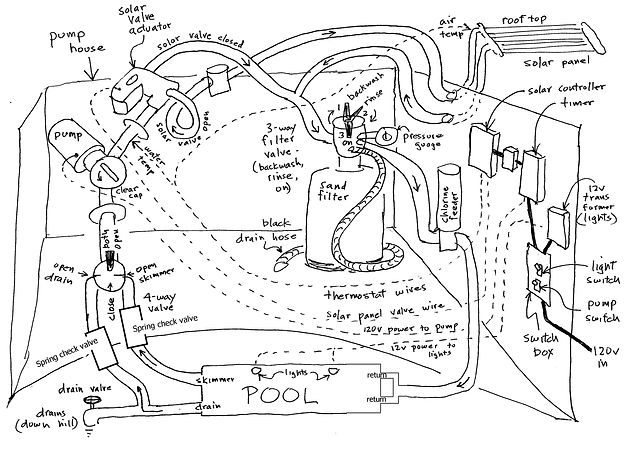 solar
valve
actuator
pump
house
solar valve closed
air
temp
roof top
solar panel
solar controller
timer
backwash
rinse
1
2
3
on
3-way
filter
valve
(backwash,
rinse,
on)
pressure
guage
pump
solar valve open
water
temp
clear
cap
sand
filter
chlorine
feeder
12v
trans
former
(lights)
black
drain hose
both
open
open
drain
open
skimmer
close
4-way
valve
light
switch
pump
switch
switch
box
120v
in
thermostat wires
solar panel valve wire
120v power to pump
12v power to
lights
Spring check valve
Spring check valve
skimmer
lights
return
POOL
drain
return
drain valve
drains
(down hill)